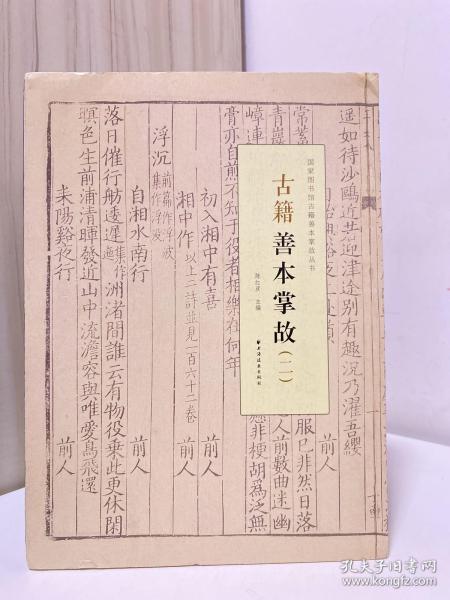 国家图书馆古籍善本掌故丛书
古籍善本掌故(二)
陈红彦 主编
上海远东出版社
遥如待沙鷗近若迎津途别有趣況乃濯吾纓
常
服巳非然日落
前人
青嶂
人前數曲迷幽
嶂連
非梗胡為泛無
膏亦自煎不知于役者相樂在何年
初入湘中有喜
前人
湘中作以上二詩並見一百六十二卷
前人
浮沉前篇作浮波集作浮沒
自湘水南行
前人
落日催行舫逶遲集作逦洲渚間誰云有物役乗此更休閑
暝色生前浦清暉發近山中流澹容與唯愛鳥飛還
耒陽谿夜行
前人
孔夫子旧书网
www.kongfz.com